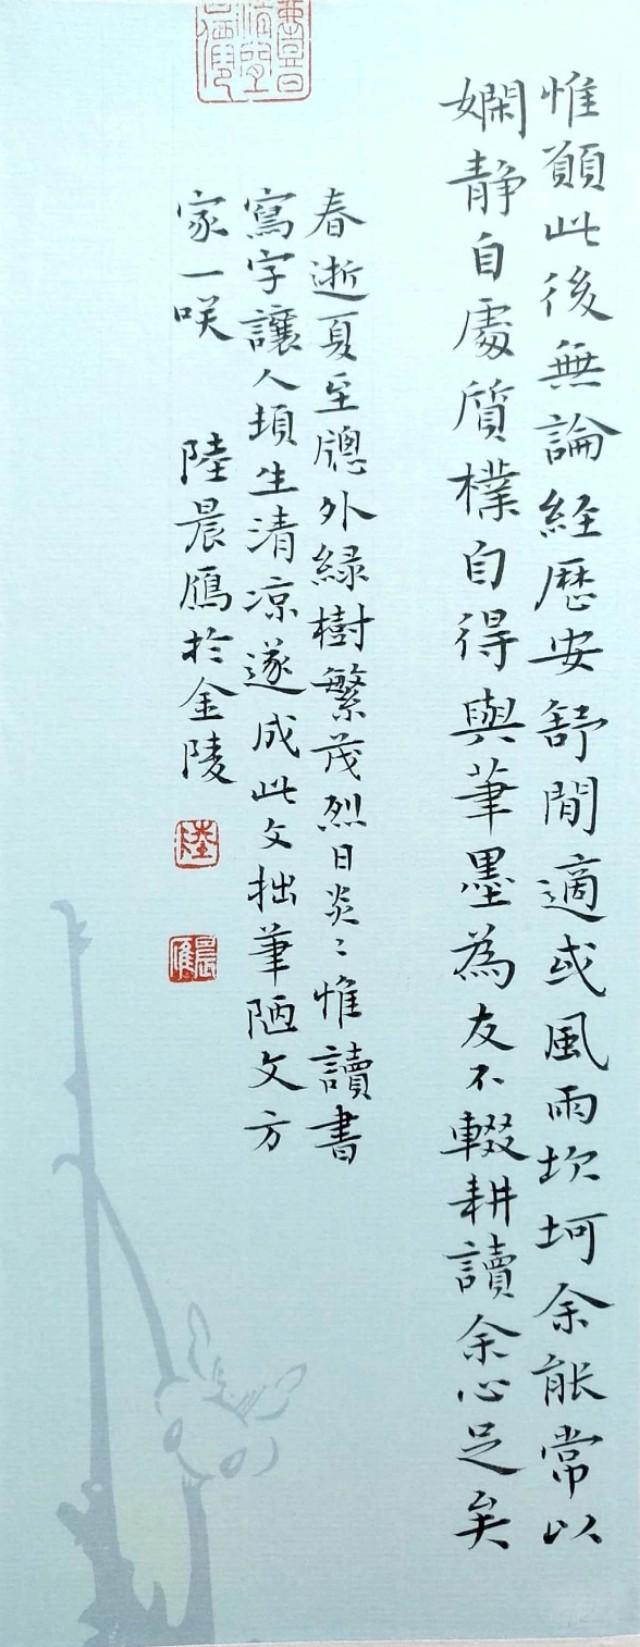 惟願此後無論經歷安舒閒適或風雨坎坷余能常以
嫻静自處質樸自得與筆墨為友不輟耕讀余心足矣
春逝夏至牕外緑樹繁茂烈日炎〻惟讀書
寫字讓人頓生清凉遂成此文拙筆陋文方
家一咲　陸晨雁於金陵
陸
晨雁